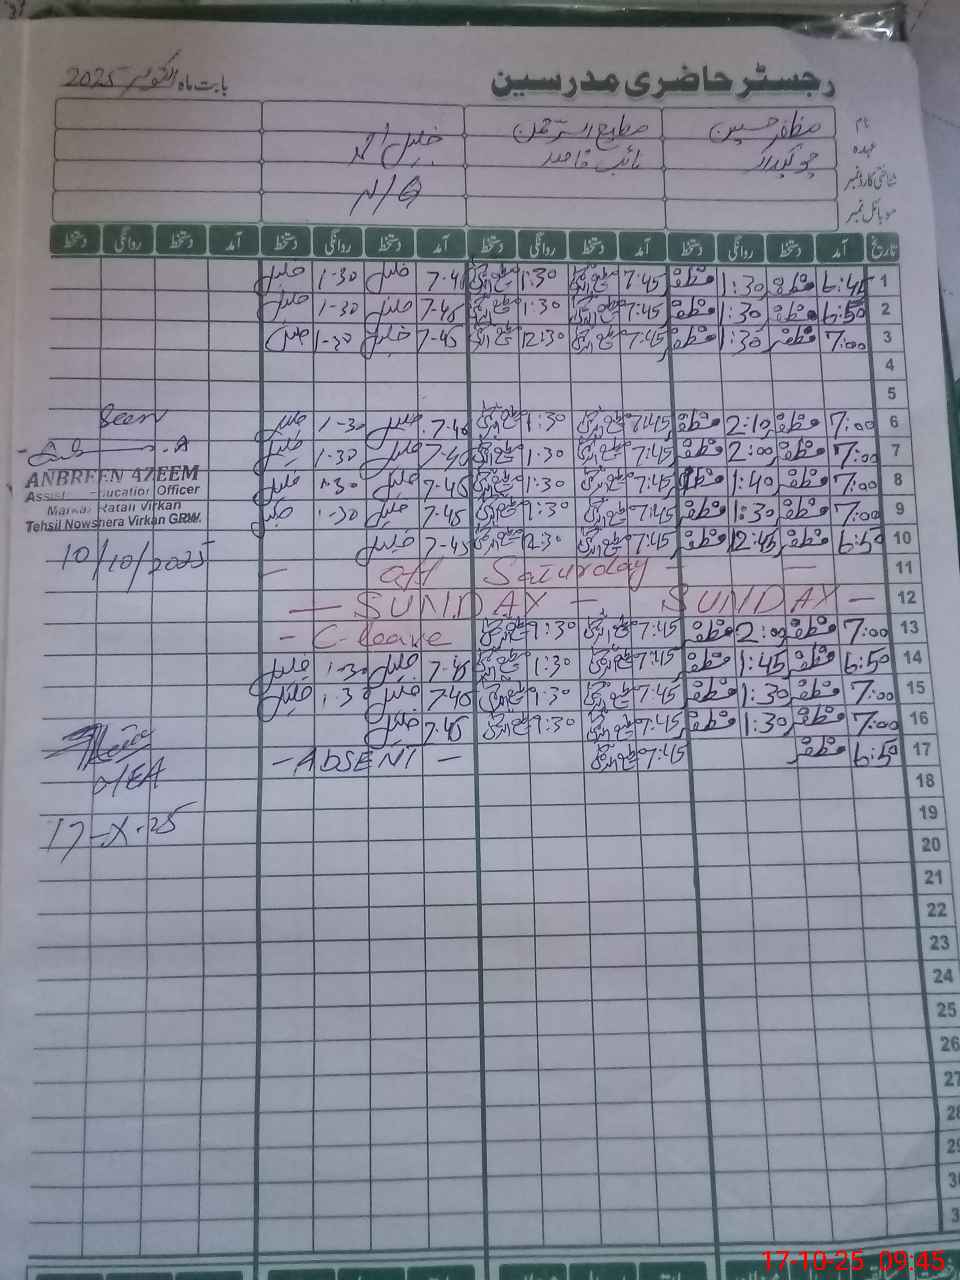 رجسٹر حاضری مدرسین
بابت ماہ اکتوبر 2025
نام مظفر حسین مطیع الرحمٰن خلیل احمد
عہدہ چوکیدار نائب قاصد N/Q
شناختی کارڈ نمبر
موبائل نمبر
تاریخ آمد دستخط روانگی دستخط آمد دستخط روانگی دستخط آمد دستخط روانگی دستخط آمد دستخط روانگی دستخط
1 6:45 مظفر 1:30 مظفر 7:45 1:30 7-45 خلیل 1-30 خلیل
2 6:50 مظفر 1:30 مظفر 7:45 1:30 7-45 خلیل 1-30 خلیل
3 7:00 مظفر 1:30 مظفر 7:45 12:30 7-45 خلیل 1-30 خلیل
4
5
6 7:00 مظفر 2:10 مظفر 7:45 1:30 7-45 خلیل 1-30 خلیل
7 7:00 مظفر 2:00 مظفر 7:45 1:30 7-45 خلیل 1-30 خلیل
8 7:00 مظفر 1:40 مظفر 7:45 1:30 7-45 خلیل 1-30 خلیل
9 7:00 مظفر 1:30 مظفر 7:45 1:30 7-45 خلیل 1-30 خلیل
10 6:50 مظفر 12:45 مظفر 7:45 12:30 7-45 خلیل
11 - off Saturday - -
12 - SUNDAY - SUNDAY -
13 7:00 مظفر 2:00 مظفر 7:45 1:30 - C-leave
14 6:50 مظفر 1:45 مظفر 7:45 1:30 7-45 خلیل 1-30 خلیل
15 7:00 مظفر 1:30 مظفر 7:45 1:30 7-45 خلیل 1-30 خلیل
16 7:00 مظفر 1:30 مظفر 7:45 1:30 7-45 خلیل
17 6:50 مظفر 7:45 - ABSENT -
18
19
20
21
22
23
24
25
26
27
28
29
Seen
ANBREEN AZEEM
Assistant Education Officer
Markaz Ratali Virkan
Tehsil Nowshera Virkan GRW.
10/10/2025
MEA
17-X-25
17-10-25 09:45